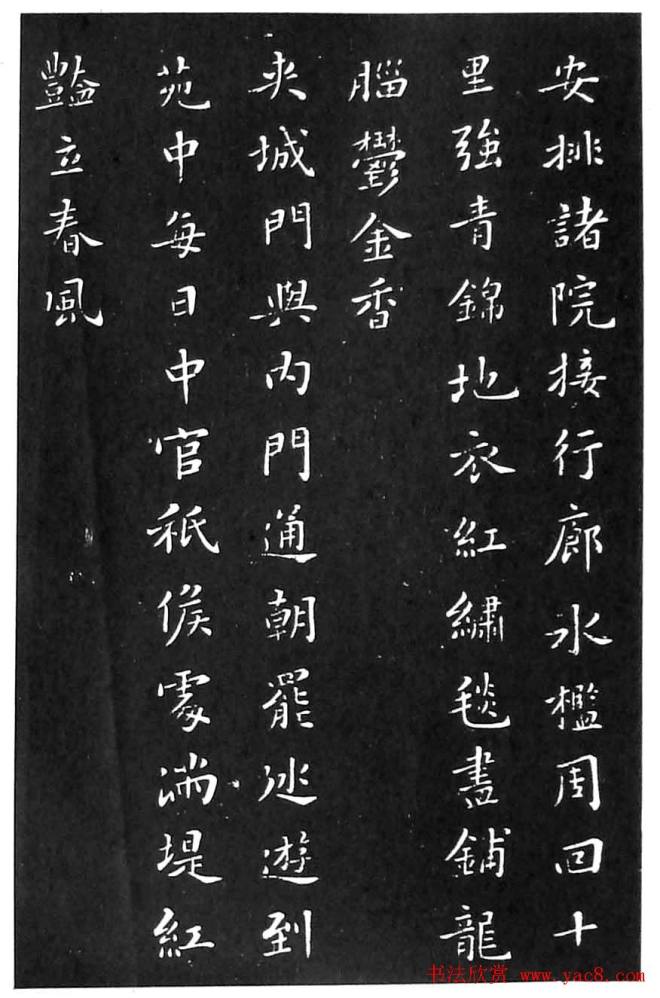 安排諸院接行廊水檻周回十
里強青錦地衣紅繡毯盡鋪龍
腦鬱金香
夾城門與内門通朝罷巡遊到
苑中每日中官祗候處滿堤紅
豔立春風
书法欣赏 www.yac8.com